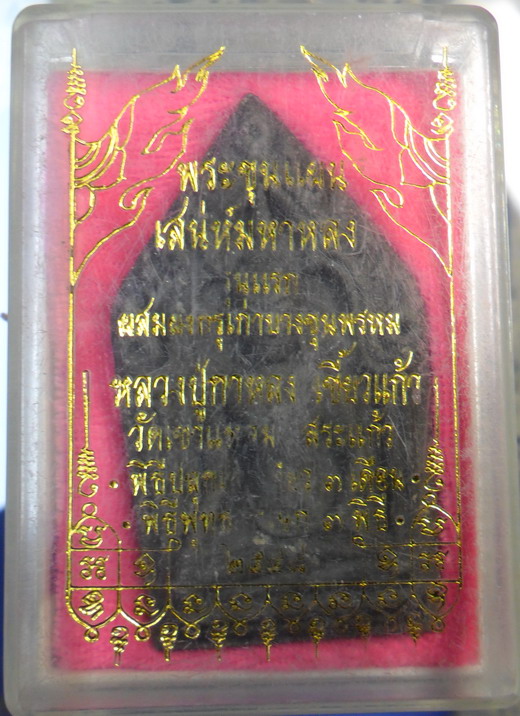 พระขุนแผน
เสน่ห์มหาหลง
รุ่นแรก
ผสมผงกรุเก่าบางขุนพรหม
หลวงปู่กาหลง เขี้ยวแก้ว
วัดเขาแหลม สระแก้ว
พิธี ๓ เดือน
พิธี ๓ พิธี